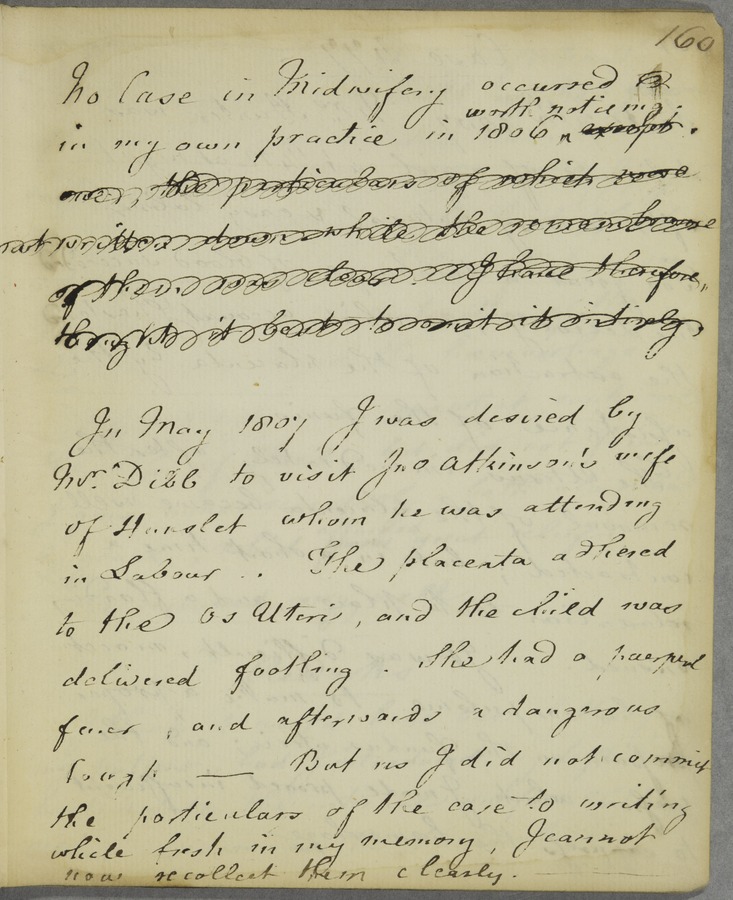 160
No Case in Midwifery occurred
worth noticing.
in my own practice in 1806 ^ except.
one, the particulars of which were
not written down while the remembrance
of them was clear. I have therefore,
thought it best to omit it intirely,
In May 1807 I was desired by
Mr. Dibb to visit Jno Atkinson's wife
of Hunslet whom he was attending
in Labour .. The placenta adhered
to the Os Uteri, and the child was
delivered footling. She had a puerperal
fever, and afterwards a dangerous
Cough — But as I did not commit
the particulars of the case to writing
while fresh in my memory, I cannot
now recollect them clearly.